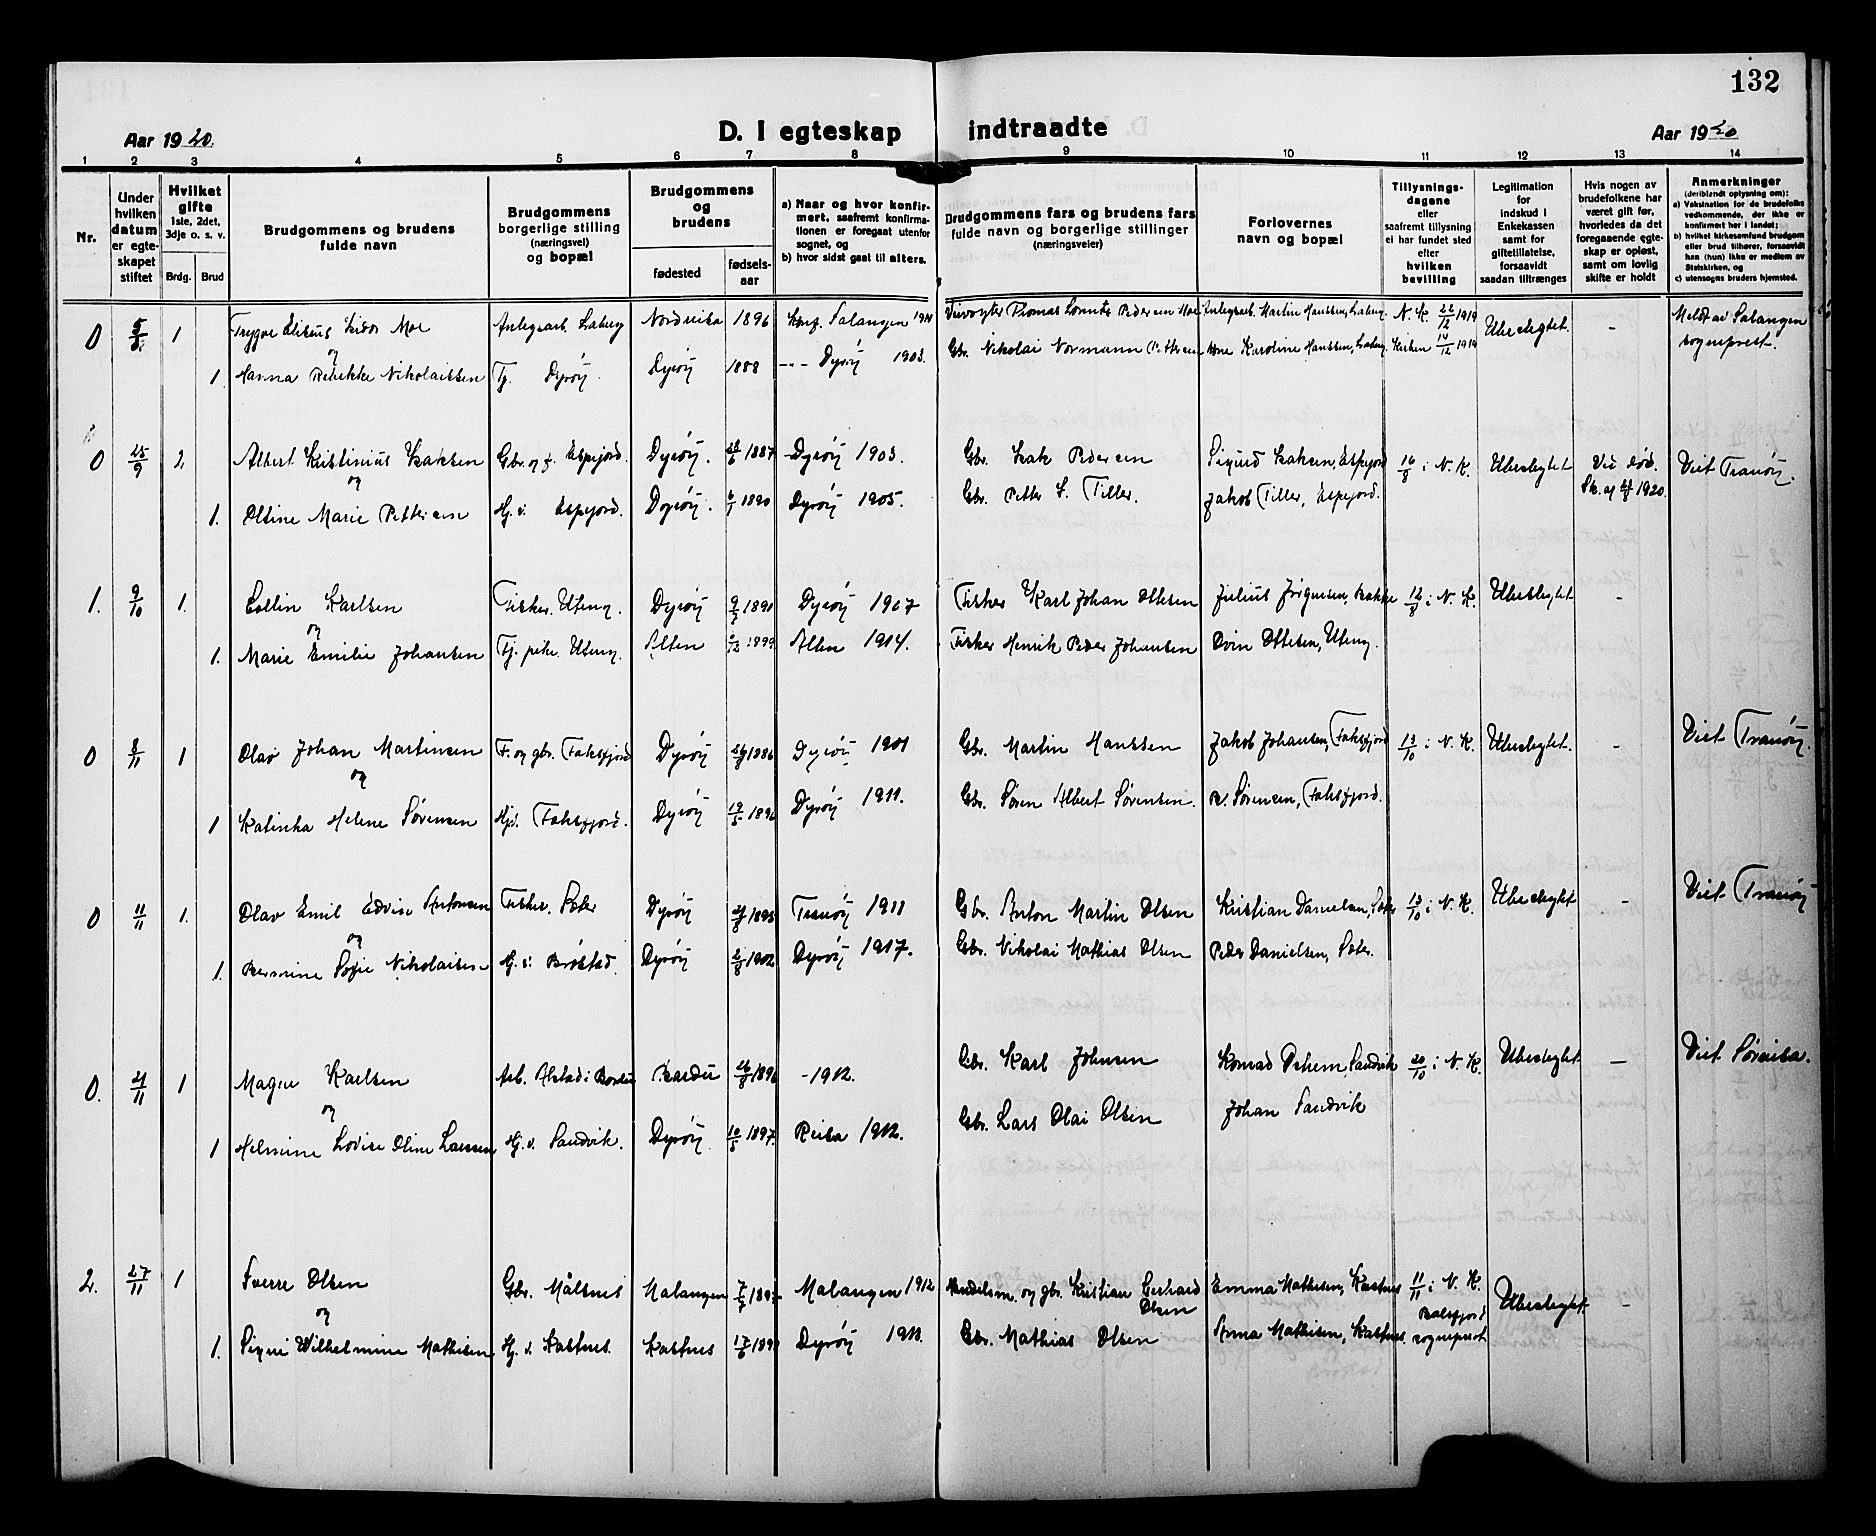 132
Aar 1920.
D. I egteskap indtraadte
Aar 1920
1 2 3 4 5 6 7 8 9 10 11 12 13 14
Nr.
Under
hvilken
datum
er egte-
skapet
stiftet
Hvilket
gifte
1ste, 2det,
3dje o. s. v.
Brdg. Brud
Brudgommens og brudens
fulde navn
Brudgommens
borgerlige stilling
(næringsvei)
og bopæl
Brudgommens
og
brudens
fødested
fødsels-
aar
a) Naar og hvor konfir-
mert, saafremt konfirma-
tionen er foregaat utenfor
sognet, og
b) hvor sidst gaat til alters.
Brudgommens fars og brudens fars
fulde navn og borgerlige stillinger
(næringsveier)
Forlovernes
navn og bopæl
Tillysnings-
dagene
eller
saafremt tillysning
ei har fundet sted
efter
hvilken
bevilling
Legitimation
for
indskud i
Enkekassen
samt for
giftetillatelse,
forsaavidt
saadan tiltrænges
Hvis nogen av
brudefolkene har
været gift før,
hvorledes da det
foregaaende egte-
skap er opløst,
samt om lovlig
skifte er holdt
Anmerkninger
(deriblandt oplysning om):
a) Vaksination for de brudefolks
vedkommende, der ikke er
konfirmert her i landet;
b) hvilket kirkesamfund brudgom
eller brud tilhører, forsaavidt
han (hun) ikke er medlem av
Statskirken, og
c) utensogns bruders hjemsted.
0 1 Trygve Moe Anlegsarb. Laberg 1896 Konf. Salangen Pedersen Moe Anlegsarb. Martin Hanssen, Laberg. N. K. 22/12 1919 Ubeslegtet. - Meldt av Salangen
sogneprest.
og
1. Hanna Rebekka Nikolaissen Tj. Dyrøy Dyrøy 1888 --- Dyrøy 1903. Gbr. Nikolai Normann Karoline Hanssen, Laberg. Kirken 14/12 1919
0 25/9 2 Albert Kristinius Isaksen Gbr. og f. Espejord. Dyrøy. 1887 Dyrøy 1903. Gbr. Isak Pedersen Sigurd Isaksen, Espejord 16/8 i N. K. Ubeslegtet Ved død. Viet Tranøy.
og
1. Oltine Marie Pettersen Hj. v. Espejord. Dyrøy. 1890 Dyrøy 1905. Gbr. Petter S. Tiller. Jakob Tiller, Espejord. 1920.
1. 9/10 1. Collin Karlsen Fisker. Dyrøy Dyrøy 1907 Fisker Karl Johan Ottesen Julius Jørgensen, Bakke i N. K. Ubeslegtet -
og
1. Marie Emilie Johansen Tj. pike. Alten 1899 Alten 1914. Fisker Henrik Peder Johansen Ottesen,
0 8/11 1 Olav Johan Martinsen F. og gbr. Faksfjord Dyrøy 1886 Dyrøy 1901 Gbr. Martin Hanssen Jakob Johansen, Faksfjord 13/10 i N. K. Ubeslegtet. - Viet Tranøy.
og
1 Katinka Helene Sørensen Hjv. Faksfjord. Dyrøy 19/5 1896 Dyrøy 1911. Gbr. Søren Albert Sørensen. Sørensen, Faksfjord.
0 11/11 1. Olav Emil Edvin Antonsen Fisker. Sæter Dyrøy Tranøy 1911 Gbr. Anton Martin Olsen Kristian Danielsen, Sæter 13/10 i N. K. Ubeslegtet - Viet Tranøy
og
1. Bermine Sofie Nikolaisen Hj. v. Brøstad. Dyrøy 1902 Dyrøy 1917. Gbr. Nikolai Mathias Olsen Peder Danielsen, Sæter.
0. 21/11 1 Magne Karlsen Arb. i Bardu Bardu 1896 - 1912. Gbr. Karl Johnsen Konrad Sandvik 20/10 i N. K. Ubeslegtet — Viet Sørreisa.
og
1 Helmine Lovise Oline Larssen Hj. v. Sandvik. Dyrøy 10/5 1897. Reisa 1912. Gbr. Lars Olai Olsen Johan Sandvik
2. 27/11 1 Sverre Olsen Gbr. Målsnes Malangen Malangen 1912 Handelsm. og gbr. Kristian Gerhard
Olsen Emma Mathisen, Kastnes 11/11 i N. K. Ubeslegtet -
Balsfjord
og
1. Signi Wilhelmine Mathisen Hj. v. Kastnes. Kastnes Dyrøy Gbr. Mathias Olsen Anna Mathisen, Kastnes. sogneprest